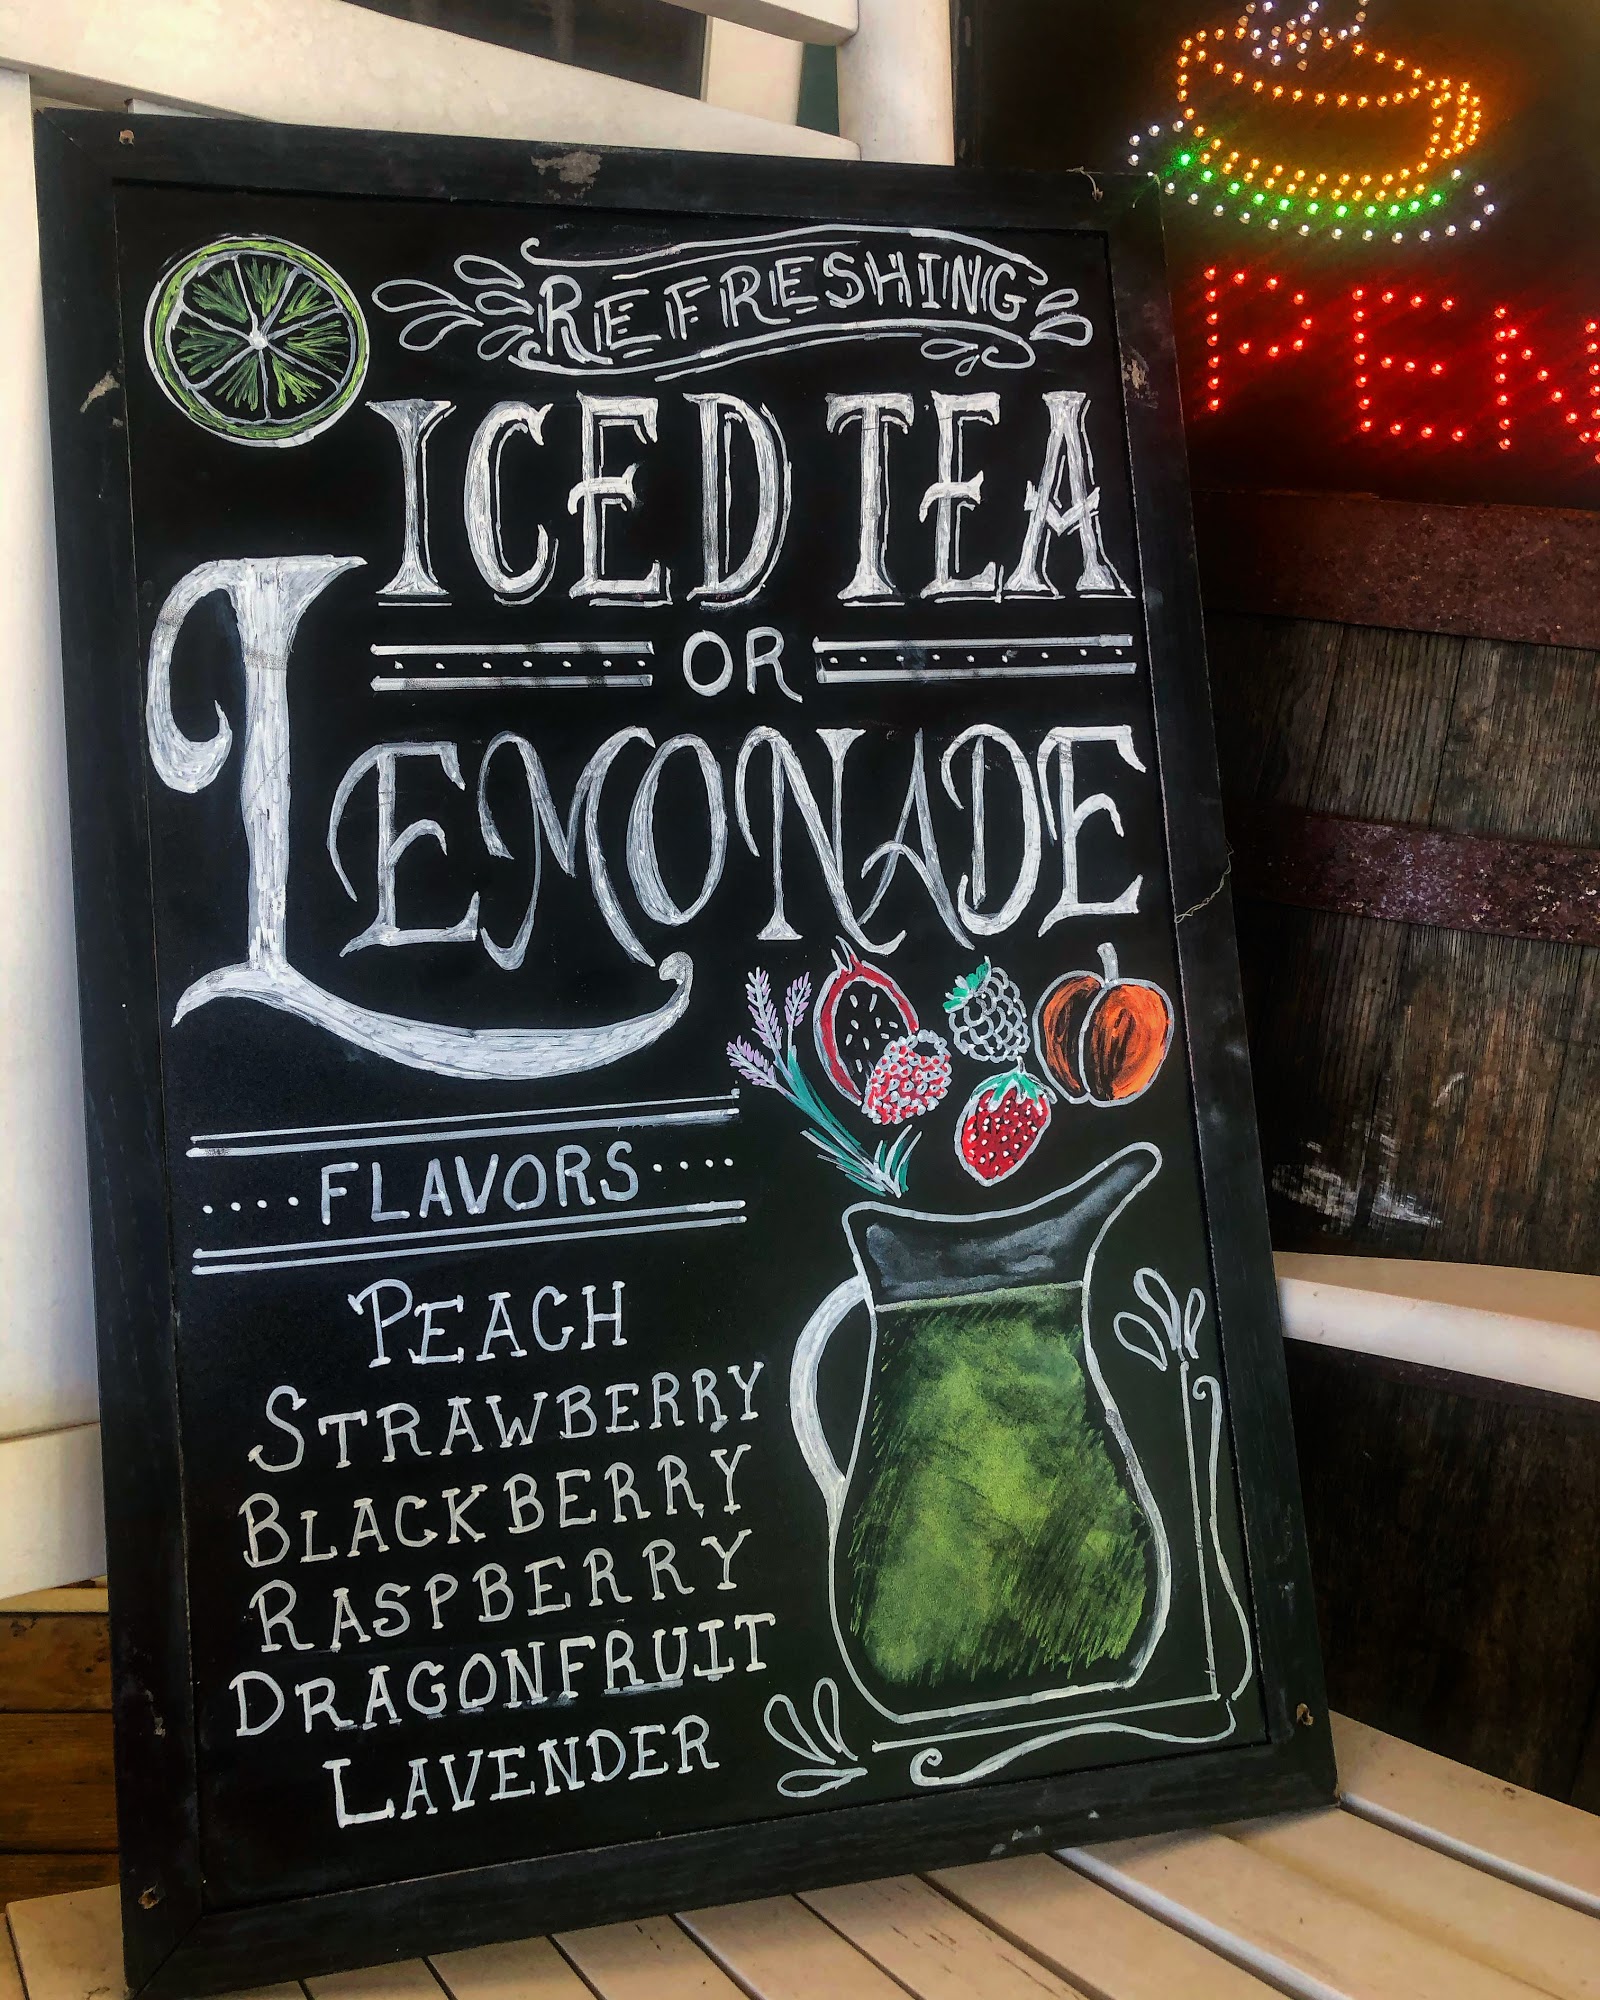 REFRESHING
ICED TEA
OR
LEMONADE
FLAVORS
PEACH
STRAWBERRY
BLACKBERRY
RASPBERRY
DRAGONFRUIT
LAVENDER
PEN